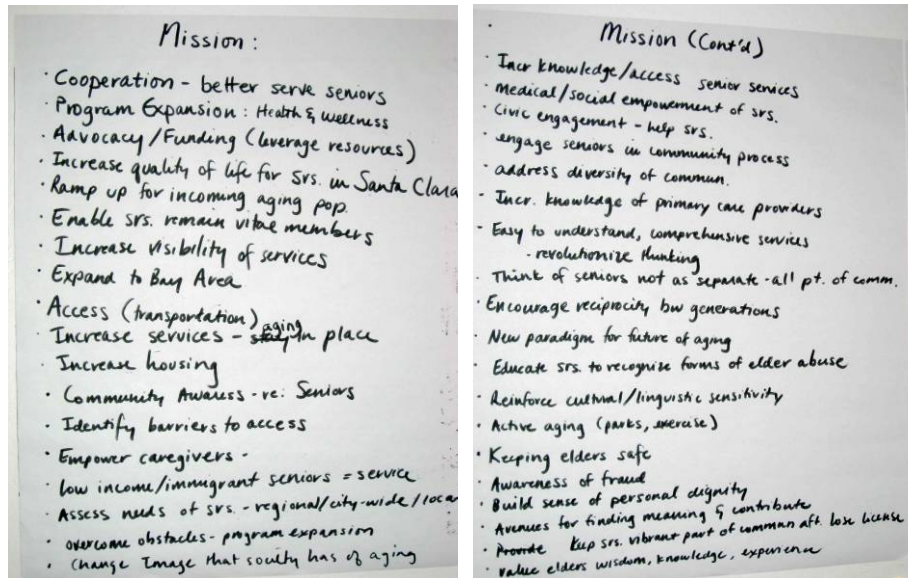 Mission:
· Cooperation - better serve seniors
· Program Expansion: Health & Wellness
· Advocacy/Funding (leverage resources)
· Increase quality of life for srs. in Santa Clara
· Ramp up for incoming aging pop.
· Enable srs. remain vital members
· Increase visibility of services
· Expand to Bay Area
· Access (transportation)
· Increase services - aging in place
· Increase housing
· Community Awaress - re: Seniors
· Identify barriers to access
· Empower caregivers -
· low income/immigrant seniors = service
· Assess needs of srs. - regional/city-wide/loca
· overcome obstacles - program expansion
· Change Image that society has of aging
Mission (Cont'd)
· Incr knowledge/access senior services
· Medical/social empowerment of srs.
· Civic engagement - help srs.
· engage seniors in community process
· address diversity of commun.
- Incr. knowledge of primary care providers
- Easy to understand, comprehensive services
- revolutionize thinking
- Think of seniors not as separate - all pt. of comm.
· Encourage reciprocity bw generations
· New paradigm for future of aging
· Educate srs. to recognize forms of elder abuse
· Reinforce cultural/linguistic sensitivity
· Active aging (parks, exercise)
· Keeping elders safe
· Awareness of fraud
· Build sense of personal dignity
· Avenues for finding meaning & contribute
· Provide Keep srs. vibrant part of commun aft. lose license
· value elders wisdom, knowledge, experience